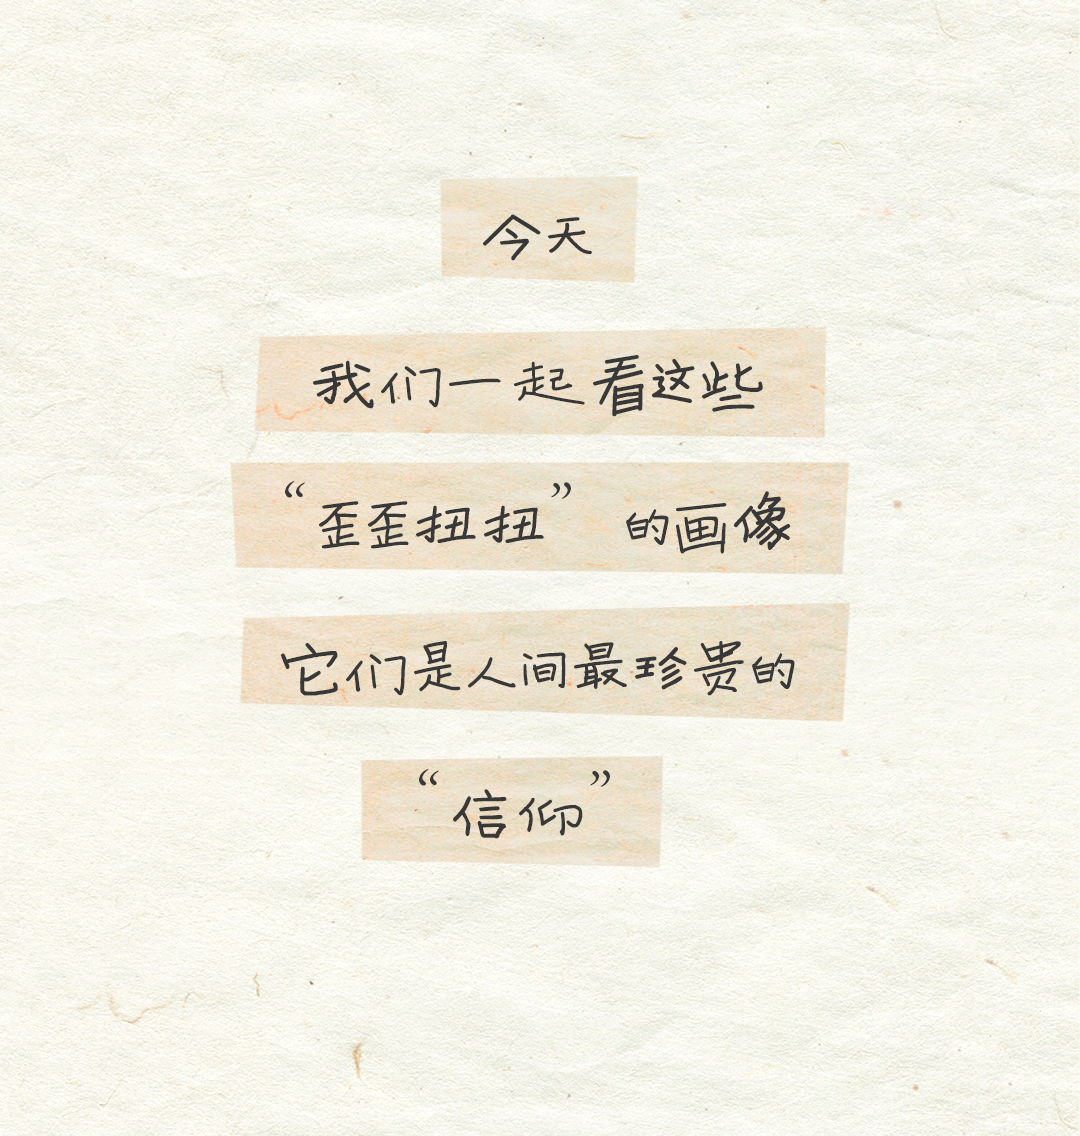 今天
我们一起看这些
“歪歪扭扭” 的画像
它们是人间最珍贵的
“信仰”